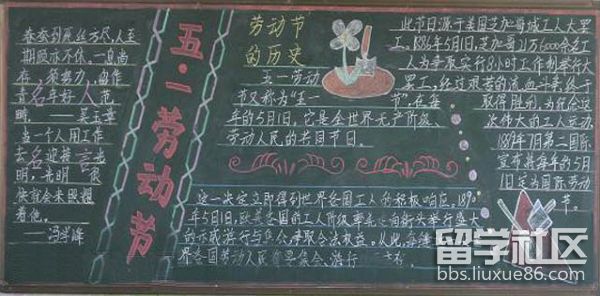 春蚕到死丝方尽,人至
期颐亦不休,一息尚
存,须努力,留作
青年好范
畴。——吴玉章
当一个人用工作
去迎接
明,光明
快就会来照耀
着他。
——冯学峰
五·一劳动节
劳动节
的历史
五一劳动
节又称为"五一节",在每
年的5月1日。它是全世界无产阶级、
劳动人民的共同节日。
此节日源于美国芝加哥城工人大罢
工,1886年5月1日,芝加哥21万6000余名工
人为争取实行8小时工作制举行大
罢工,经过艰苦的流血斗争,终于
取得胜利。为纪念这
次伟大的工人运动
1889年7月第二国际
宣布将每年的5月
1日定为国际劳动
节。
这一决定立即得到世界各国工人的积极响应。1890
年5月1日,欧美各国的工人阶级率先走向街头,举行盛大
的示威游行与集会,争取合法权益。从此,每逢
界各国劳动人民都要集会、游行
留学社区
bbs.liuxue86.com